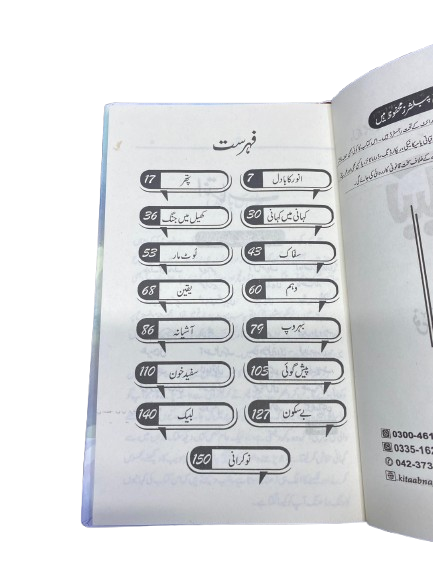 فہرست
انور کا بادل 7
پتھر 17
کہانی میں کہانی 30
کھیل میں جنگ 36
سفاک 43
لوٹ مار 53
وہم 60
یقین 68
بہروپ 79
آشیانہ 86
پیش گوئی 103
سفید خون 110
بے سکون 127
لبیک 140
نوکرانی 150
پبلشرز محفوظ ہیں
0300-461
0335-162
042-373
.kitaabna